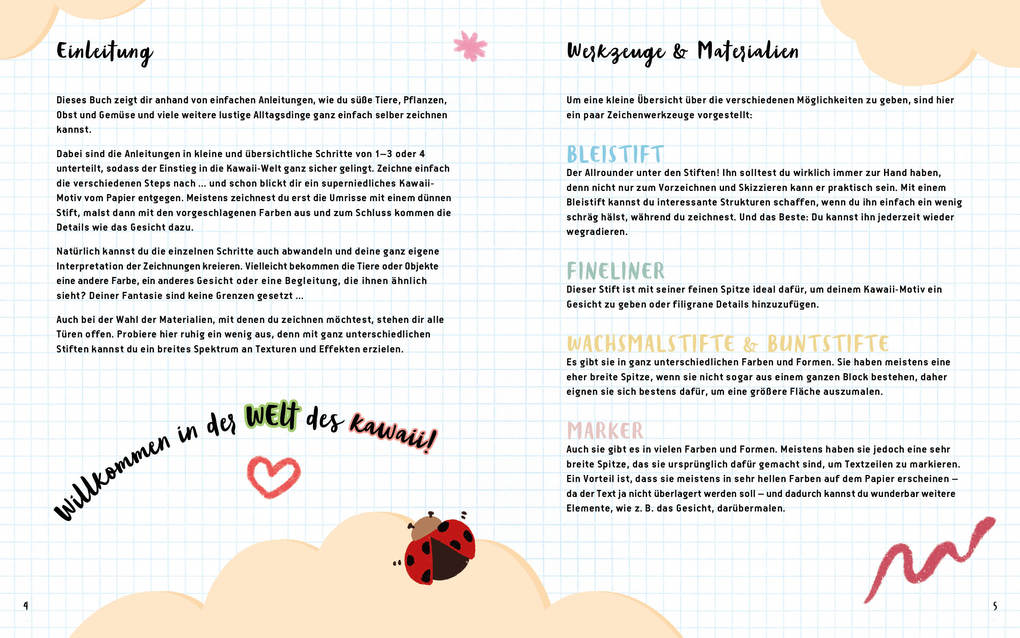 Einleitung
Dieses Buch zeigt dir anhand von einfachen Anleitungen, wie du süße Tiere, Pflanzen,
Obst und Gemüse und viele weitere lustige Alltagsdinge ganz einfach selber zeichnen
kannst.
Dabei sind die Anleitungen in kleine und übersichtliche Schritte von 1–3 oder 4
unterteilt, sodass der Einstieg in die Kawaii-Welt ganz sicher gelingt. Zeichne einfach
die verschiedenen Steps nach ... und schon blickt dir ein superniedliches Kawaii-
Motiv vom Papier entgegen. Meistens zeichnest du erst die Umrisse mit einem dünnen
Stift, malst dann mit den vorgeschlagenen Farben aus und zum Schluss kommen die
Details wie das Gesicht dazu.
Natürlich kannst du die einzelnen Schritte auch abwandeln und deine ganz eigene
Interpretation der Zeichnungen kreieren. Vielleicht bekommen die Tiere oder Objekte
eine andere Farbe, ein anderes Gesicht oder eine Begleitung, die ihnen ähnlich
sieht? Deiner Fantasie sind keine Grenzen gesetzt ...
Auch bei der Wahl der Materialien, mit denen du zeichnen möchtest, stehen dir alle
Türen offen. Probiere hier ruhig ein wenig aus, denn mit ganz unterschiedlichen
Stiften kannst du ein breites Spektrum an Texturen und Effekten erzielen.
Willkommen in der WELT des kawaii!
4
Werkzeuge & Materialien
Um eine kleine Übersicht über die verschiedenen Möglichkeiten zu geben, sind hier
ein paar Zeichenwerkzeuge vorgestellt:
BLEISTIFT
Der Allrounder unter den Stiften! Ihn solltest du wirklich immer zur Hand haben,
denn nicht nur zum Vorzeichnen und Skizzieren kann er praktisch sein. Mit einem
Bleistift kannst du interessante Strukturen schaffen, wenn du ihn einfach ein wenig
schräg hälst, während du zeichnest. Und das Beste: Du kannst ihn jederzeit wieder
wegradieren.
FINELINER
Dieser Stift ist mit seiner feinen Spitze ideal dafür, um deinem Kawaii-Motiv ein
Gesicht zu geben oder filigrane Details hinzuzufügen.
WACHSMALSTIFTE & BUNTSTIFTE
Es gibt sie in ganz unterschiedlichen Farben und Formen. Sie haben meistens eine
eher breite Spitze, wenn sie nicht sogar aus einem ganzen Block bestehen, daher
eignen sie sich bestens dafür, um eine größere Fläche auszumalen.
MARKER
Auch sie gibt es in vielen Farben und Formen. Meistens haben sie jedoch eine sehr
breite Spitze, das sie ursprünglich dafür gemacht sind, um Textzeilen zu markieren.
Ein Vorteil ist, dass sie meistens in sehr hellen Farben auf dem Papier erscheinen –
da der Text ja nicht überlagert werden soll – und dadurch kannst du wunderbar weitere
Elemente, wie z. B. das Gesicht, darübermalen.
5